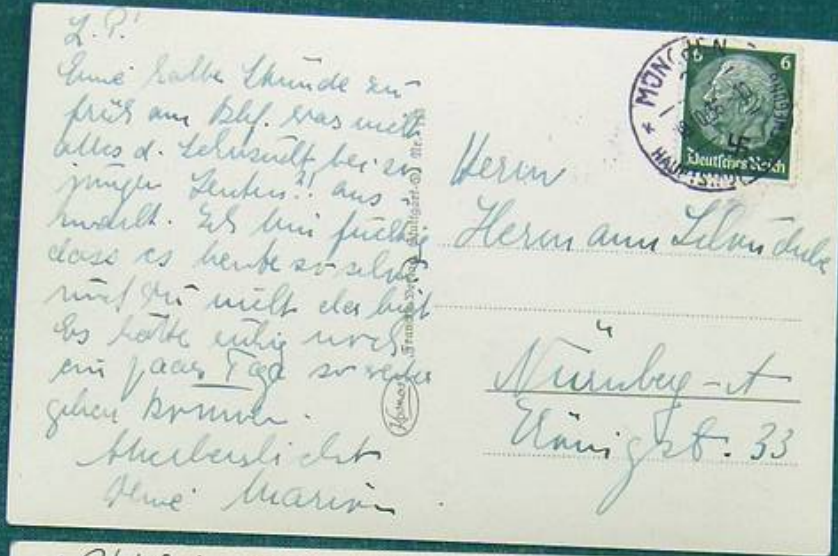 L. P.!
Eine halbe Stunde zu
früh am Bhf. was nicht
alles d. Sehnsucht bei so
jungen Leuten?! aus-
macht. Ich bin
dass es heute so schön
und Du nicht da bist
Es hätte ruhig noch
ein paar Tage so weiter
gehen können.
Allerherzlichst
Deine Marion
Kosmos
Franckh Verlag Stuttgart-O Nr.
MÜNCHEN
HAUPTST
6
6
Deutsches Reich
Herrn
Hermann
Nürnberg-A
Königstr. 33